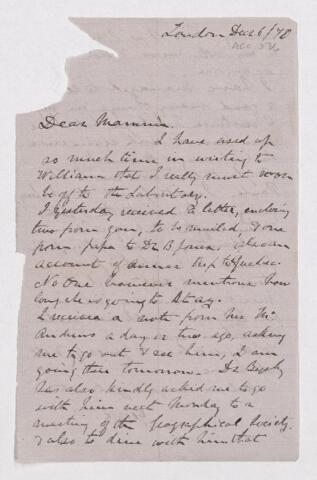 London Dec 6/78
Dear Mamma.
I have used up
so much time in writing to
William that I really must soon
be off to the Laboratory.
I yesterday received a letter, enclosing
two from you, to be mailed, & one
from papa to Dr B Jones. Also an
account of trip to Quebec.
No one however mentions how
long he is going to stay.
I received a note from Mr Mc
Andrew a day or two ago, asking
me to go out & see him, I am
going there tomorrow. Dr Bigsby
has also kindly asked me to go
with him next Monday to a
meeting of the Geographical Society.
& also to dine with him that